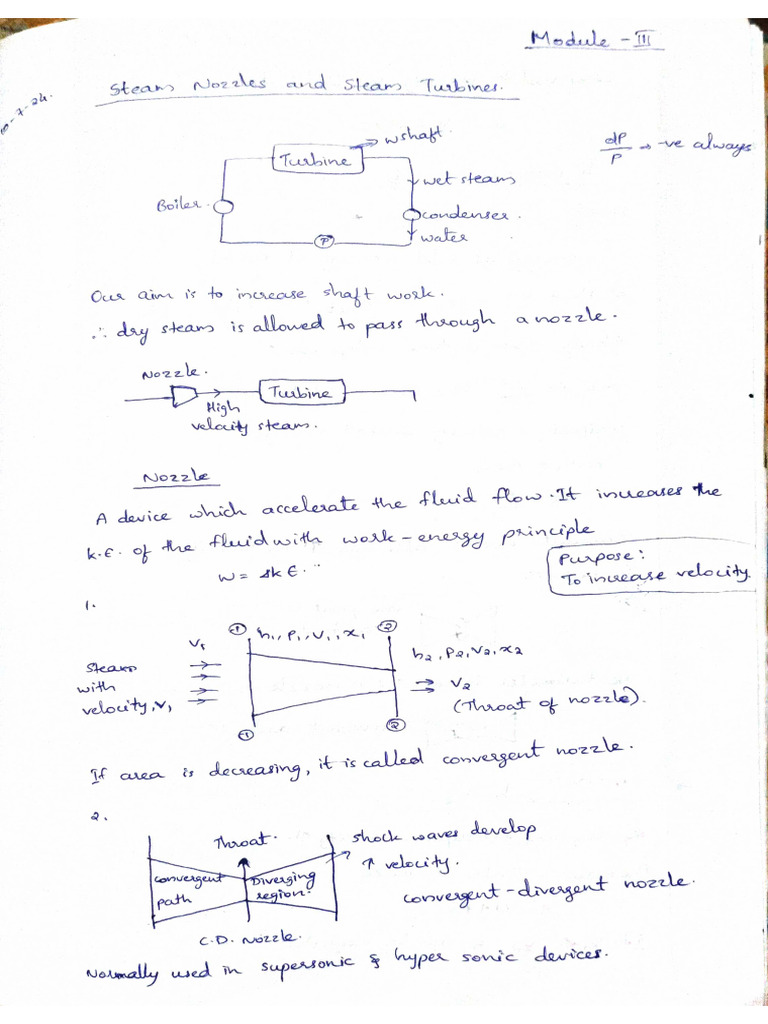 Module - III
10-7-24.
Steam Nozzles and Steam Turbines.
Wshaft.
Turbine
dP/P → -ve always
wet steam
Boiler.
condenser.
P
water
Our aim is to increase shaft work.
∴ dry steam is allowed to pass through a nozzle.
Nozzle.
Turbine
High
velocity steam.
Nozzle
A device which accelerate the fluid flow. It increases the
K.E. of the fluid with work-energy principle
W = ΔKE.
Purpose:
To increase velocity.
1.
① h1, P1, V1, x1 ②
V1
h2, P2, V2, x2
Steam
with
velocity, V1
V2
(Throat of nozzle).
① ②
If area is decreasing, it is called convergent nozzle.
2.
Throat.
shock waves develop
↑ velocity.
convergent
path
Diverging
region.
convergent-divergent nozzle.
C.D. Nozzle.
Normally used in supersonic & hyper sonic devices.